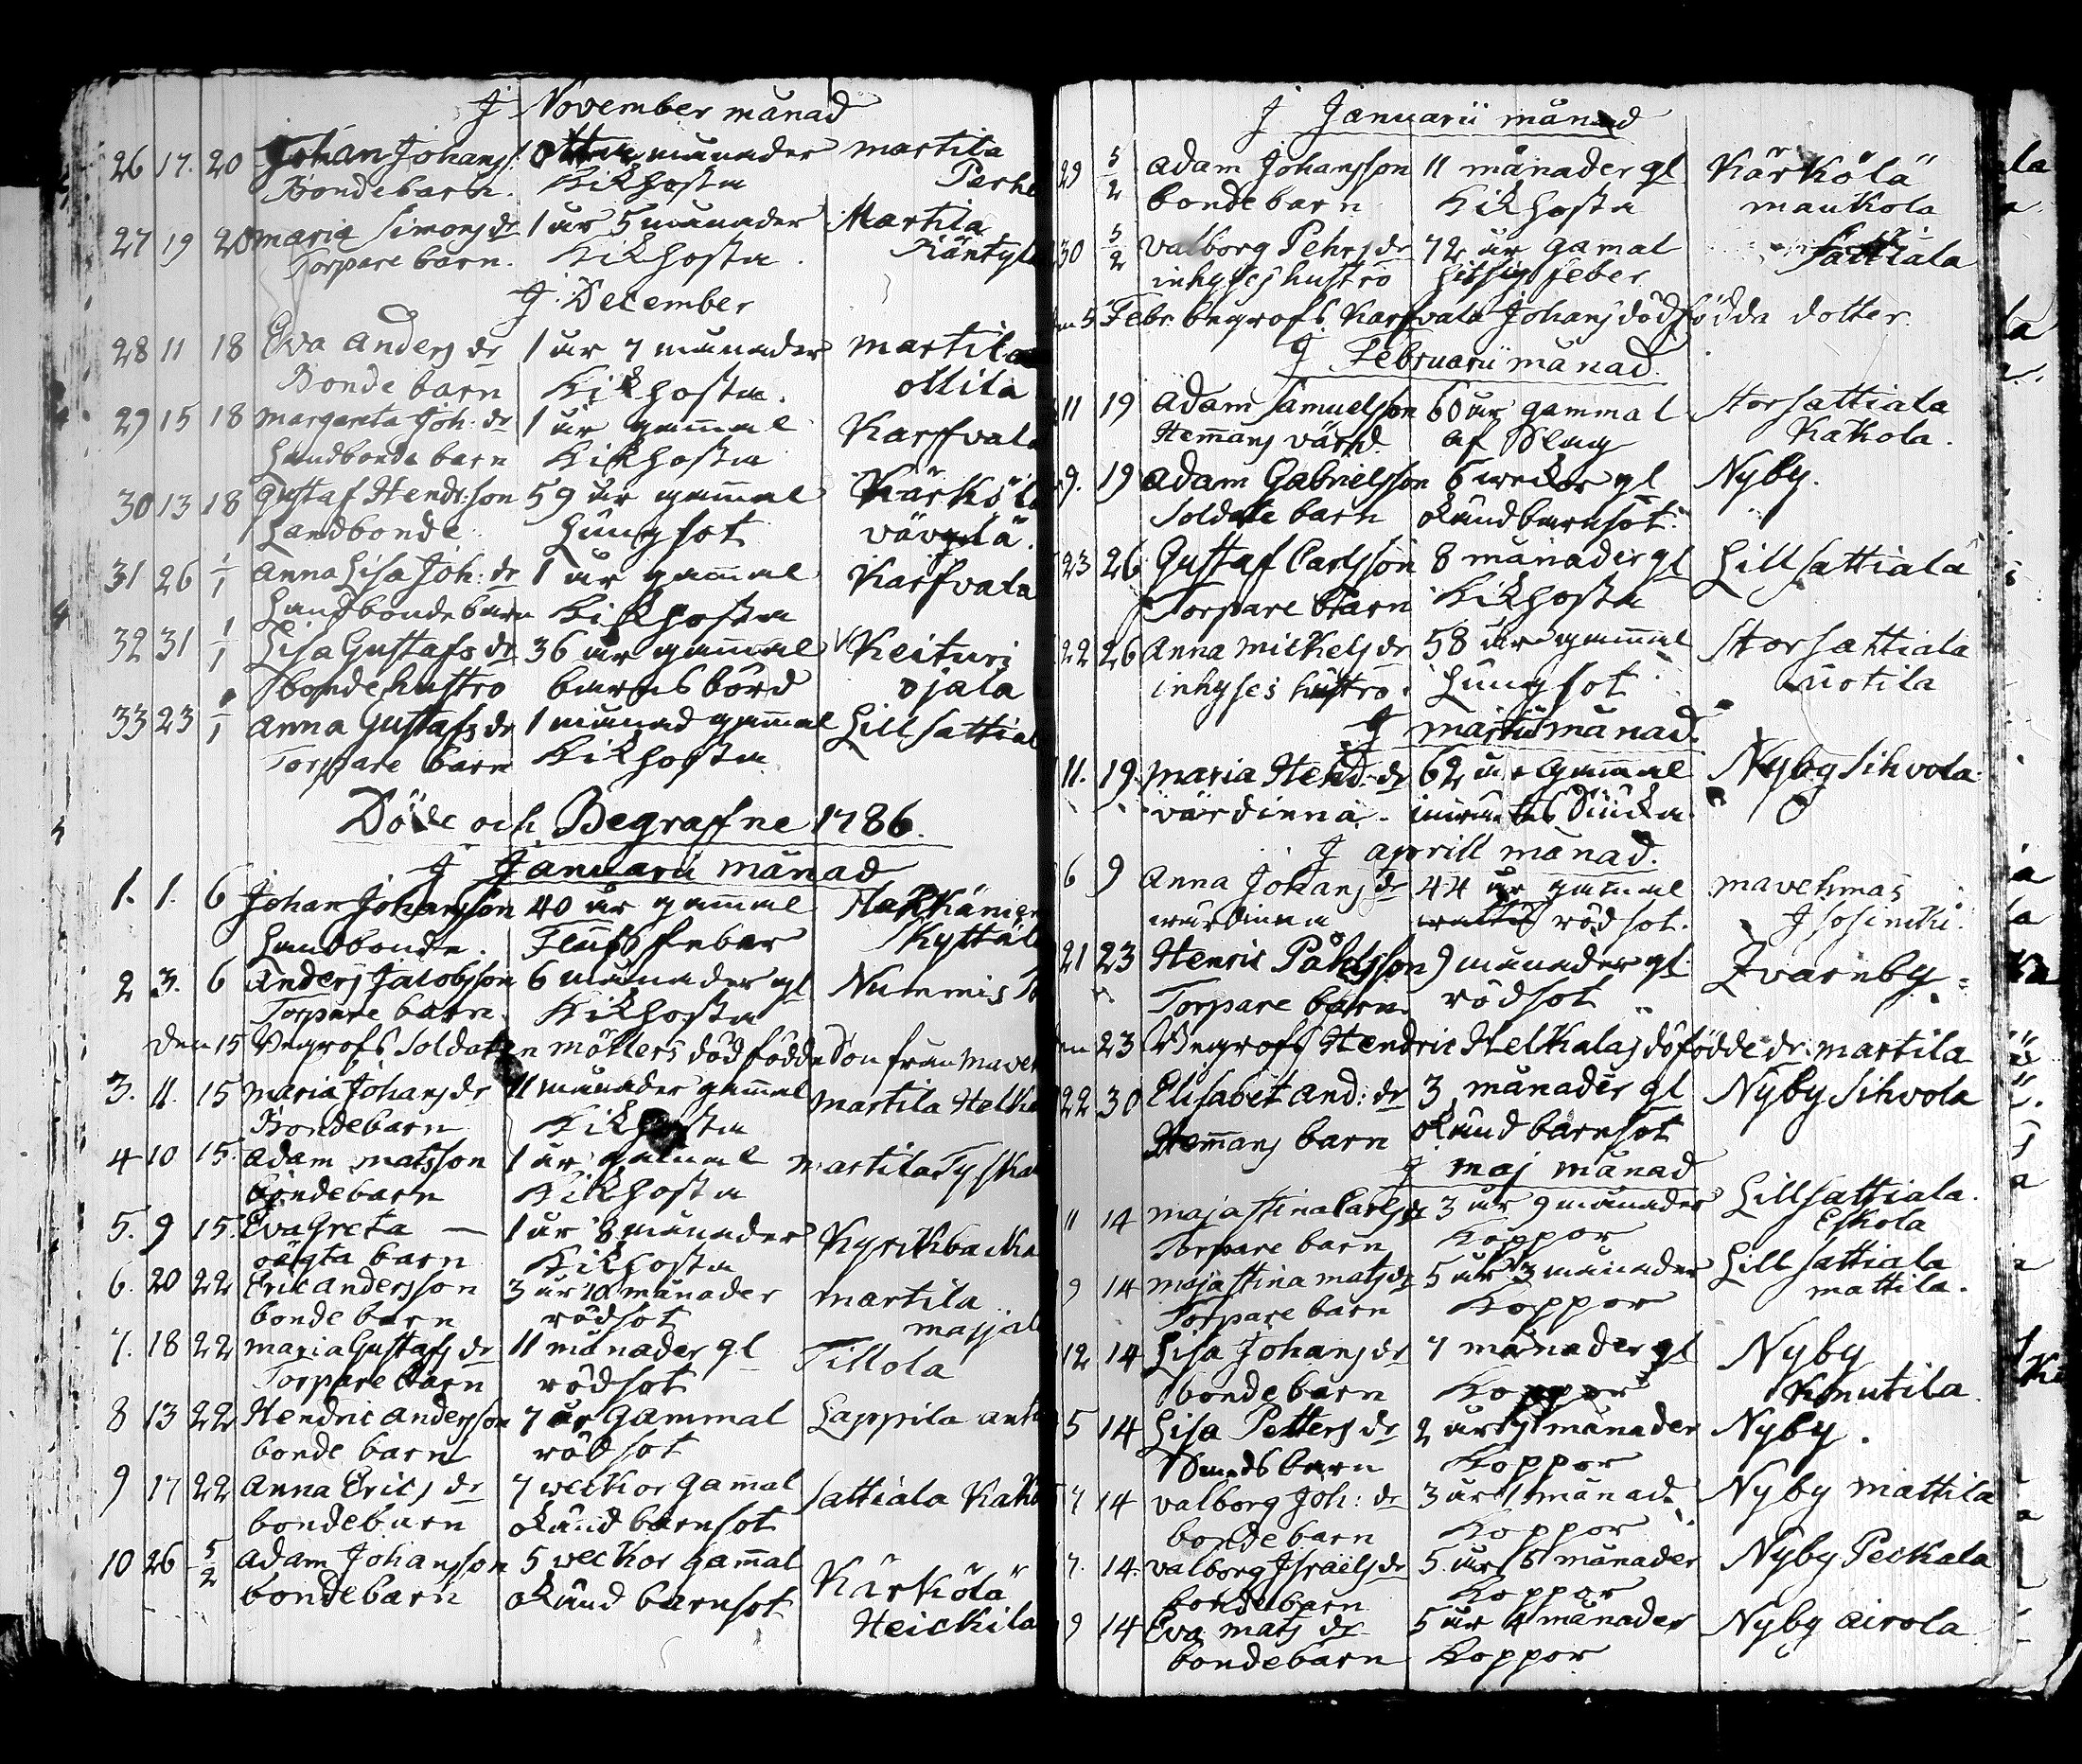 J November månad
26 17. 20 Johan Johans: otta månader martila
Bondebarn. Kikhosta Perhe
27 19 20 maria Simons dr 1 år 5 månader Martila
Torpare barn. Kikhosta. Käntyl
J December
28 11 18 Eva Anders dr 1 år 7 månader martila
Bonde barn Kikhosta. ollila
29 15 18 margareta Joh: dr 1 år gammal Karfvala
Landbonde barn Kikhosta
30 13 18 Gustaf Hendr:son 59 år gammal Kärköl
Landbonde Lungsot
31 26 1/1 Anna Lisa Joh: dr 1 år gammal Karfvala
Landbonde barn Kikhosta
32 31 1/1 Lisa Gustafs dr 36 år gammal Keituri
bonde hustro barnsbörd ojala
33 23 1/1 Anna Gustafs dr 1 månad gammal Lill sattial
Torpare barn Kikhosta
Döde och Begraffne 1786.
J Januarii månad
1. 1. 6 Johan Johansson 40 år gammal
Landbonde. Fluss feber Skyttäl
2 3. 6 Anders Jacobsson 6 månader gl Nummis
Torpare barn Kikhosta
den 15 Begrofs Soldaten möllers dödfödde Son från mave
3. 11. 15 Maria Johans dr 11 månader gammal martila Helka
Bondebarn Kikhosta
4 10 15. Adam matsson 1 år gammal martila Tyska
bondebarn Kikhosta
5. 9 15. Eva Greta — 1 år 8 månader Kyrckbacka
oägta barn Kikhosta
6. 20 22 Eric andersson 3 år 10 månader martila
bonde barn rödsot
7. 18 22 maria Gustafs dr 11 månader gl Tillola
Torpare barn rödsot
8 13 22 Hendric andersson 7 år gammal Lappila
bonde barn rödsot
9 17 22 Anna Erics dr 7 weckor gammal Sattiala Kak
bondebarn okänd barnsot
10 26 5/2 Adam Johansson 5 weckor gammal Kärkölä
bondebarn okänd barnsot Heickila
J Januarii månad
29 5/2 Adam Johansson 11 månader gl Kärkölä
bonde barn Kikhosta maukola
30 5/2 Valborg Pehrs dr 72 år gamal Sattiala
inhyses hustro hitsig feber
5 Febr. begrofs Karfvala Johans dödfödda dotter.
J Februarii månad.
11 19 Adam Samuelsson 60 år gammal Storsattiala
Hemans värd. af Slag Kakola.
9. 19 Adam Gabrielsson 6 weckor gl Nyby.
Soldate barn okänd barnsot.
23 26 Gustaf Carlsson 8 månader gl Lill sattiala
Torpare barn Kikhosta
22 26 Anna mickels dr 58 år gammal Storsattiala
inhyses hustro. Lungsot uotila
J martii månad.
11. 19. Maria Hend: dr 62 år gammal Nyby Sihvola
värdinna. Siucka
J aprill månad.
6 9 Anna Johans dr 44 år gammal mavehmas
wärdinna rödsot. Isosimki
21 23 Henric Påhlsson 9 månader gl Qvarnby
Torpare barn. rödsot
23 Begrofs Hendric Helkalas döfödde dr. martila
22 30 Elisabet And: dr 3 månader gl Nyby Sihvola
Hemans barn okänd barnsot
J maj månad
11 14 maja Stina Carls dr 3 år 9 månader Lillsattiala.
Torpare barn Koppor Eskola
9 14 maja Stina mats dr 5 år 3 månader Lill sattiala
Torpare barn Koppor mattila.
12 14 Lisa Johans dr 7 månader gl Nyby
bonde barn Koppor Knutila
5 14 Lisa Petters dr 2 år månader Nyby.
barn Koppor
7 14 Valborg Joh: dr 3 år 1 månad Nyby mattila
bonde barn Koppor
7. 14. Valborg Israels dr 5 år 6 månader Nyby Peckala
bonde barn Koppor
9 14 Eva mats dr 5 år 4 månader Nyby airola
bondebarn Koppor